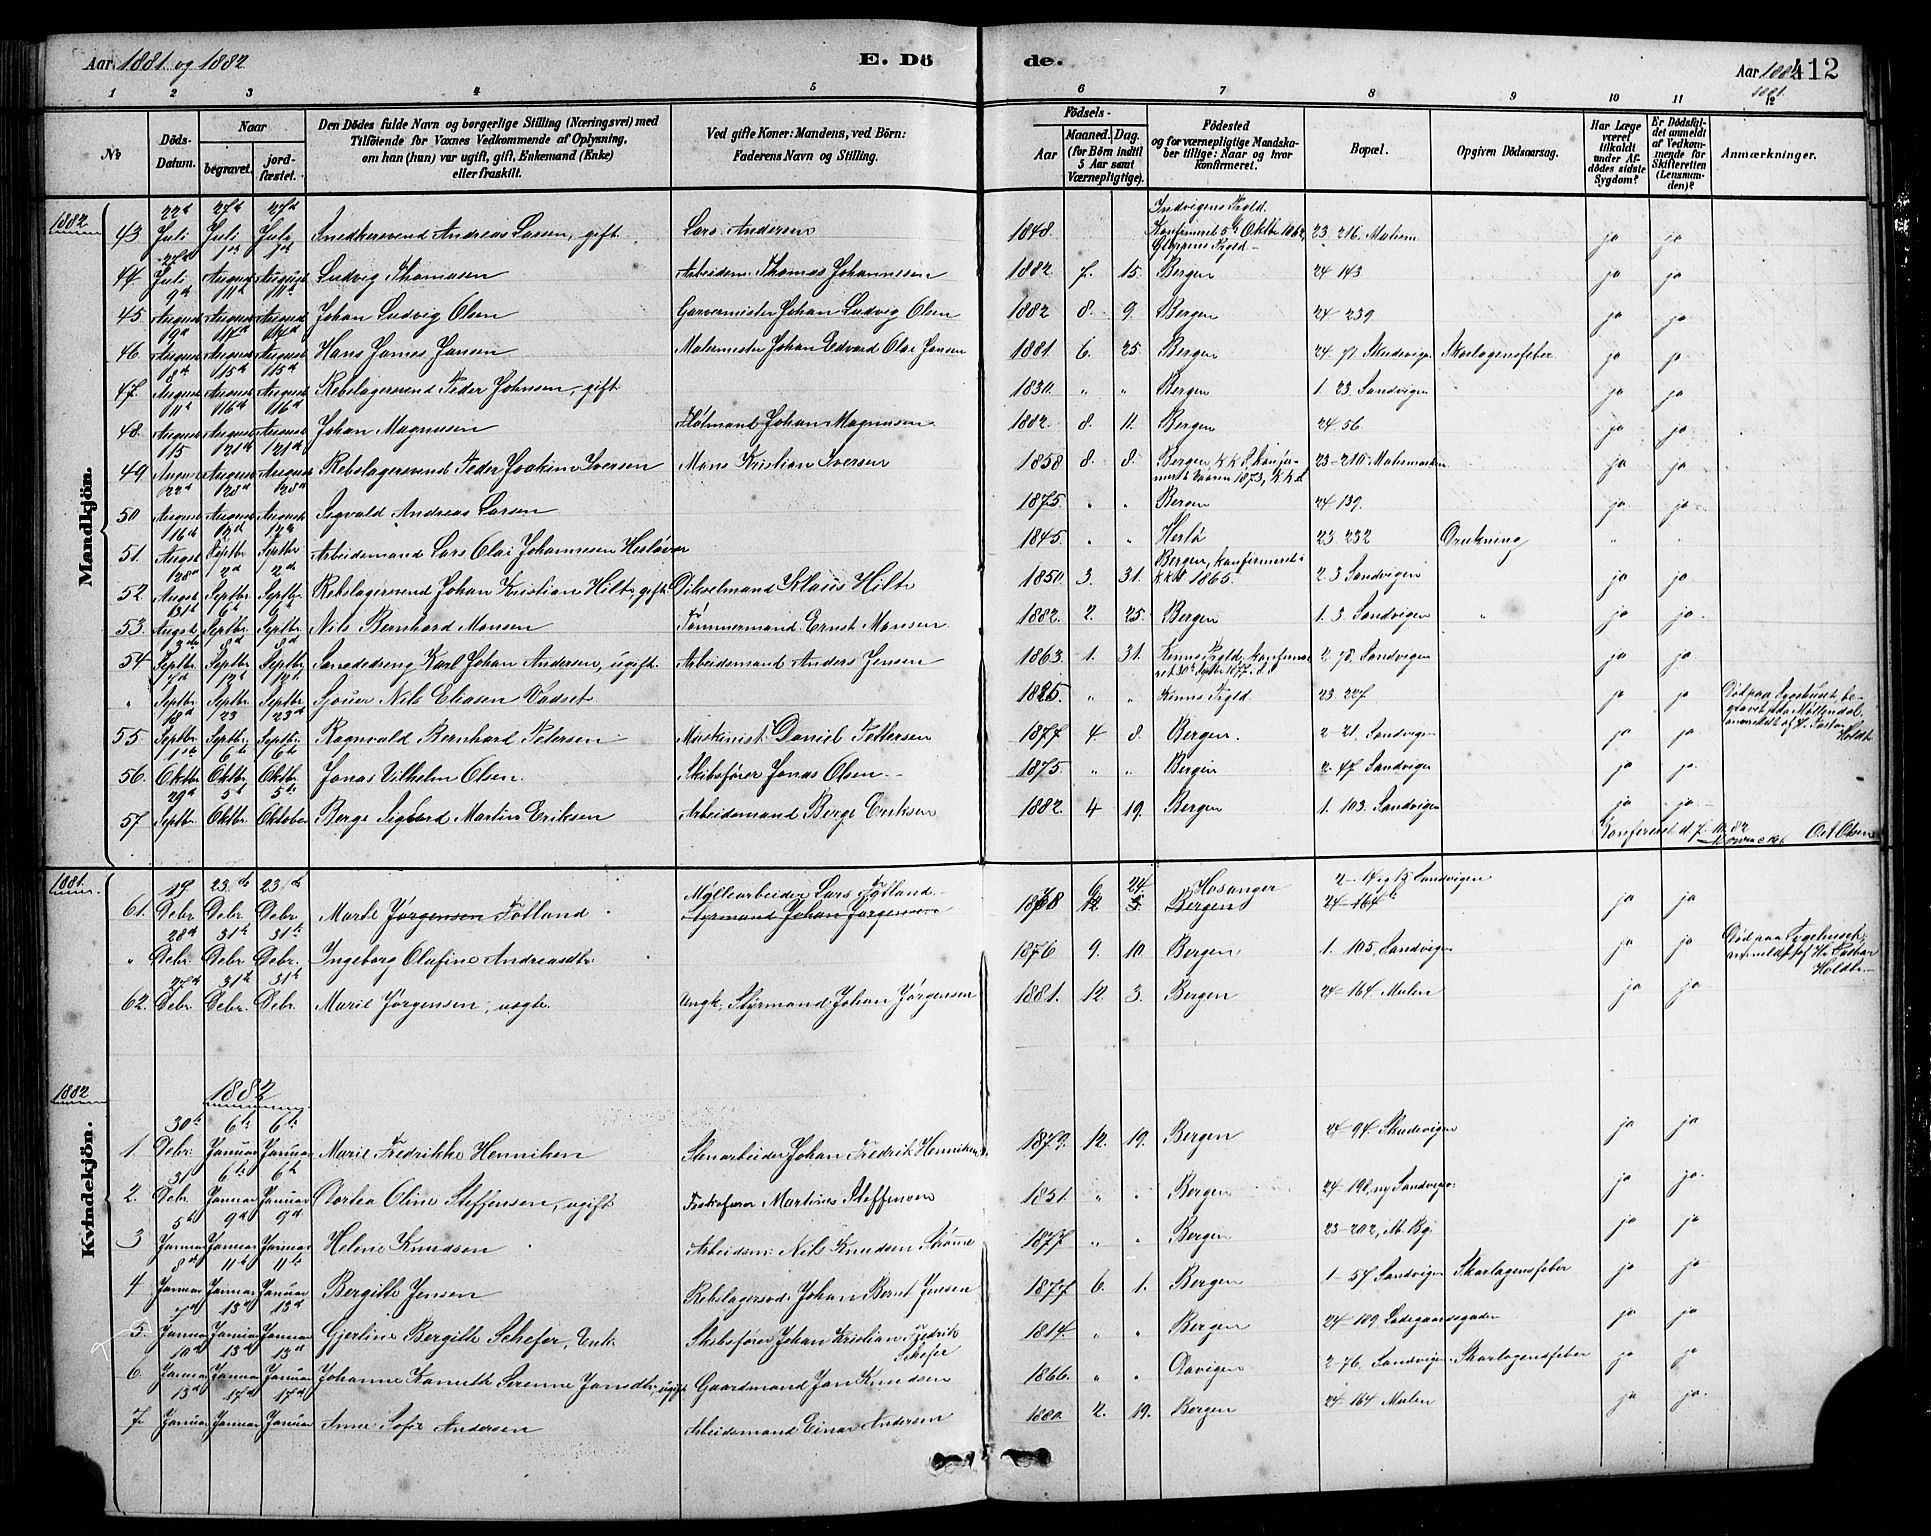 Aar 1881 og 1882
E. Dö de.
Aar 1882 412
1881.
1 2 3 4 5 6 7 8 9 10 11 12
No
Döds-Datum.
Naar
begravet.
jordfæstet.
Den Dödes fulde Navn og borgerlige Stilling (Næringsvei) med Tilföiende for Voxnes Vedkommende af Oplysning, om han (hun) var ugift, gift, Enkemand (Enke) eller fraskilt.
Ved gifte Koner: Mandens, ved Börn: Faderens Navn og Stilling.
Födsels-
Aar
Maaned. Dag. (for Börn indtil 5 Aar samt Værnepligtige).
Födested og for værnepligtige Mandskaber tillige: Naar og hvor konfirmeret.
Bopæl.
Opgiven Dödsaarsag.
Har Læge været tilkaldt under Afdödes sidste Sygdom?
Er Dödsfaldet anmeldt af Vedkommende for Skifteretten (Lensmanden)?
Anmærkninger.
Mandkjön.
1882
43 22d Juli 27d Juli 27d Juli Snedkersvend Andreas Larsen, gift Lars Andersen 1848. Indvigens Prgld. Konfirmeret 5te Oktbr 1862, Gloppens Prgld 23 216. Mulem ja ja
44 Juli August August Ludvig Thomasen Arbeidsm. Thomas Johannesen 1882 7. 15. Bergen 24 143 ja ja
45. 9d August 11te August 11te August Johan Ludvig Olsen Garvermester Johan Ludvig Olsen 1882 8. 9. Bergen 24 239 ja ja
46 August August August Hans James Jansen Malermester Johan Edvard Olai Jansen 1881. 6. 25 Bergen 24 71 Skudevigen Skarlagensfeber ja ja
47. 8d August 15d August 15d August Rebslagersvend Peder Johnsen, gift 1830. " " Bergen 1. 23 Sandvigen ja ja
48. 11te August 16d August 16d August Johan Magnusen Flötmand Johan Magnusen 1882. 8. 11. Bergen 24 56 ja ja
49. 15 August 21de August 21d August Rebslagersvend Peder Joakim Iversen Mons Kristian Iversen 1858 8. 8. 23-210 ja ja
50 22d August 28d August 28d August Sigvald Andreas Larsen 1875. " " Bergen 24 139. ja ja
51. 16d August Septbr Septbr Arbeidsmand Lars Olai Johannesen Herløver 1845 " " Herlö 23 232 Drukning " "
52. 28d August 2d Septbr. 2d Septbr Rebslagersvend Johan Kristian Hilt, gift Dikselmand Klaus Hilt 1850. 3. 31. Bergen, konfirmeret i 1865. 2. 3 Sandvigen ja ja
53. 31te Augst 6te Septbr. 6te Septbr. Nils Bernhard Monsen Tömmermand Ernst Monsen 1882. 2. 25. Bergen 1. 3 Sandvigen " ja ja
54 3d Septbr 8d Septbr 8d Septbr Karl Johan Andersen, ugift. Arbeidsmand Anders Jensen 1863. 1. 31. Kinns Prgld, 2. 78. Sandvigen ja ja
" Septbr Septbr Septbr Sjouer Nils Eliasen Vadset 1825 " " Kinns Prgld. 23 227 ja ja Död paa Sygehuset,
55 18d Septbr 23 Septbr. 23d Septbr. Ragnvald Bernhard Petersen Maskinist Daniel Pettersen 1877 4. 8. Bergen. 2 21. Sandvigen ja ja Holdt
56. 1ste Oktbr 6te Oktbr. 6te Oktbr. Jonas Vilhelm Olsen. Skibsförer Jonas Olsen 1875. " " Bergen 2. 47. Sandvigen ja ja
57 29d Septbr. 5te Oktbr. 5te Oktober Berge Sigvard Martin Eriksen Arbeidsmand Berge Eriksen 1882. 4 19. Bergen 1. 103. Sandvigen ja ja
Konfereret d. 7. 10. 82 Oct Olsen
Kvindekjön.
1881.
61. 19 Debr. 23de Debr 23de Debr. Marte Jørgensen Totland Mylléarbeider Lars Totland Styrmand Johan Jørgensen 6 24 12 3 Hosanger Bergen 2 - 14 og 15 Sandvigen 24 - 164 ja ja
" 28d Debr. 31te Debr 31te Debr. Ingeborg Olufine Andreasdtr. 1876 9. 10 Bergen 1. 105, Sandvigen ja ja Död paa Sygehuset, anmeldt af Hr. Pastor Holdt
62. 27d Debr. 31te Debr. 31te Debr. Marie Jørgensen, uægte. Ungk. Styrmand Johan Jørgensen 1881. 12. 3. Bergen 24-164. Mulen ja ja
1882
1882
1. 30te Debr. 6te Januar 6te Januar Marie Fredrikke Henriksen Stenarbeider Johan Fredrik Henriksen 1879. 12. 19. Bergen 24 94. Skudevigen ja ja
2. 31 Debr 6te Januar 6te Januar Dortea Oline Steffensen, ugift Martines Steffensen 1851. " " Bergen 24-198, ny Sandvigs. ja ja
3 5te Januar 9d Januar 9d Januar Helene Knudsen Arbeidsm. Nils Knudsen Strømme 1877 " " Bergen 23-202, M. Bg. ja ja
4 8de Januar 11te Januar 11te Januar Bergitte Jensen Rebslagersvd. Johan Bernt Jensen 1877 6. 1. Bergen 1-57 Sandvigen Skarlagensfeber ja ja
5. 7d Januar 13d Januar 13d Januar Gjertine Bergitte Schefer, Enk. Skibsförer Johan Kristian Fredrik Schefer 1814. " " Bergen 24 189 Ladegaardsgaden ja ja
6 10d Januar 13d Januar 13d Januar Johanne Serenne Jansdtr., ugift Gaardmand Jan Knudsen 1866. " " 2-76. Sandvigen Skarlagensfeber ja ja
7. 13d Januar 17d Januar 17d Januar Anne Sofie Andersen Arbeidsmand Einar Andersen 1880. 2. 19. Bergen 24-164 Mulen ja ja